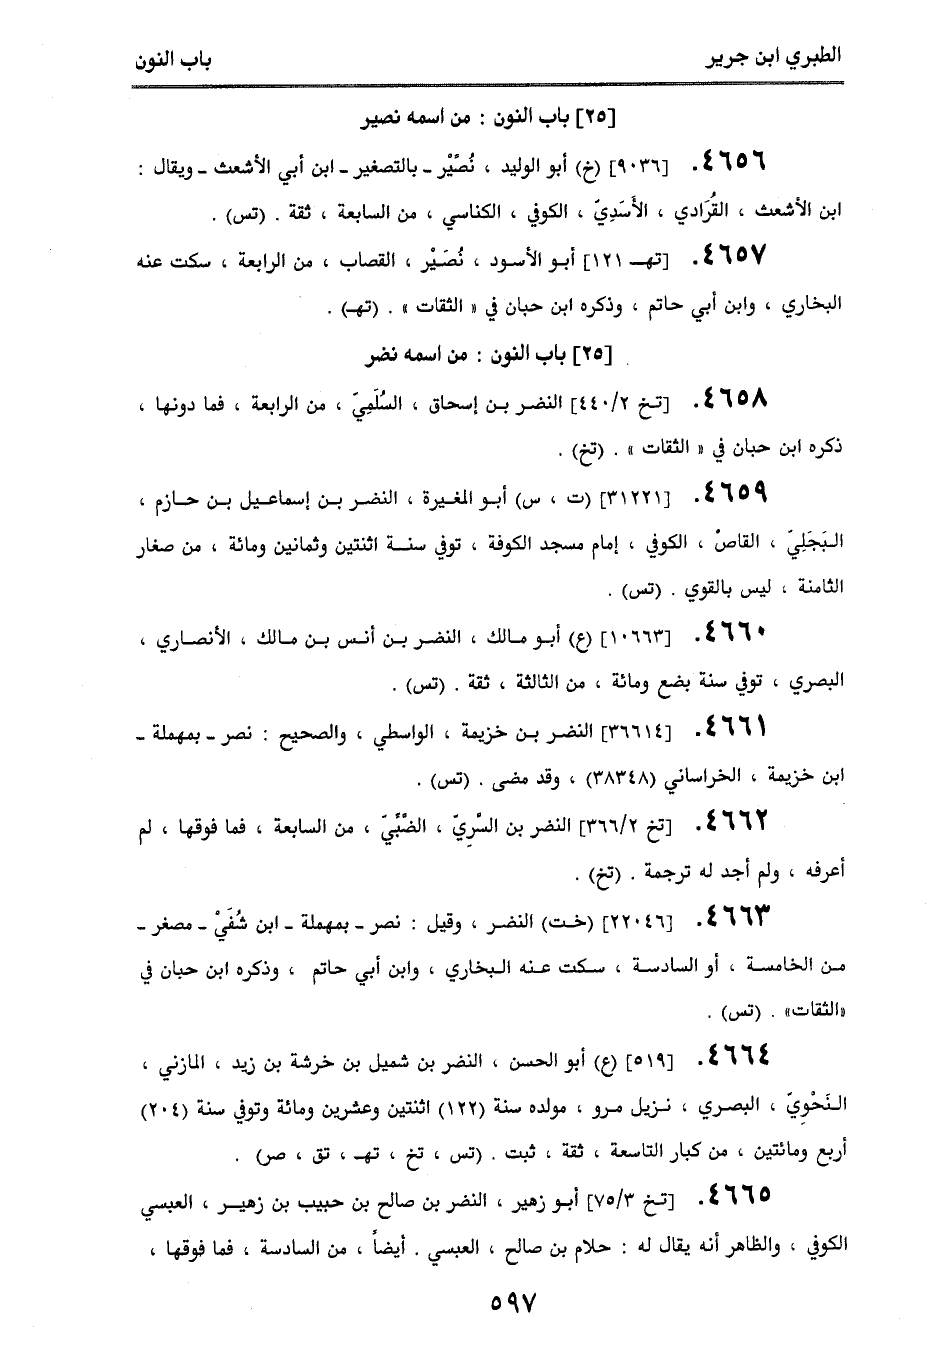 الطبري ابن جرير باب النون
[٢٥] باب النون : من اسمه نصير
٤٦٥٦. [٩٠٣٦] (خ) أبو الوليد ، نُصَيْر ـ بالتصغير ـ ابن أبي الأشعث ـ ويقال :
ابن الأشعث ، القُرَادي ، الأَسَدِيّ ، الكوفي ، الكناسي ، من السابعة ، ثقة . (تس) .
٤٦٥٧. [تهـ ١٢١] أبو الأسود ، نُصَيْر ، القصاب ، من الرابعة ، سكت عنه
البخاري ، وابن أبي حاتم ، وذكره ابن حبان في « الثقات » . (تهـ) .
[٢٥] باب النون : من اسمه نضر
٤٦٥٨. [تخ ٤٤٠/٢] النضر بن إسحاق ، السُلَمِيّ ، من الرابعة ، فما دونها ،
ذكره ابن حبان في « الثقات » . (تخ) .
٤٦٥٩. [٣١٢٢١] (ت ، س) أبو المغيرة ، النضر بن إسماعيل بن حازم ،
البَجَلِيّ ، القاصّ ، الكوفي ، إمام مسجد الكوفة ، توفي سنة اثنتين وثمانين ومائة ، من صغار
الثامنة ، ليس بالقوي . (تس) .
٤٦٦٠. [١٠٦٦٣] (ع) أبو مالك ، النضر بن أنس بن مالك ، الأنصاري ،
البصري ، توفي سنة بضع ومائة ، من الثالثة ، ثقة . (تس) .
٤٦٦١. [٣٦٦١٤] النضر بن خزيمة ، الواسطي ، والصحيح : نصر ـ بمهملة ـ
ابن خزيمة ، الخراساني (٣٨٣٤٨) ، وقد مضى . (تس) .
٤٦٦٢. [تخ ٣٦٦/٢] النضر بن السِّرِيّ ، الضَّبِّيّ ، من السابعة ، فما فوقها ، لم
أعرفه ، ولم أجد له ترجمة . (تخ) .
٤٦٦٣. [٢٢٠٤٦] (خت) النضر ، وقيل : نصر ـ بمهملة ـ ابن شُفَيْ ـ مصغر ـ
من الخامسة ، أو السادسة ، سكت عنه البخاري ، وابن أبي حاتم ، وذكره ابن حبان في
«الثقات» . (تس) .
٤٦٦٤. [٥١٩] (ع) أبو الحسن ، النضر بن شميل بن خرشة بن زيد ، المازني ،
النَحْوِيّ ، البصري ، نزيل مرو ، مولده سنة (١٢٢) اثنتين وعشرين ومائة وتوفي سنة (٢٠٤)
أربع ومائتين ، من كبار التاسعة ، ثقة ، ثبت . (تس ، تخ ، تهـ ، تق ، صر) .
٤٦٦٥. [تخ ٧٥/٣] أبو زهير ، النضر بن صالح بن حبيب بن زهير ، العبسي
الكوفي ، والظاهر أنه يقال له : حلام بن صالح ، العبسي . أيضاً ، من السادسة ، فما فوقها ،
٥٩٧